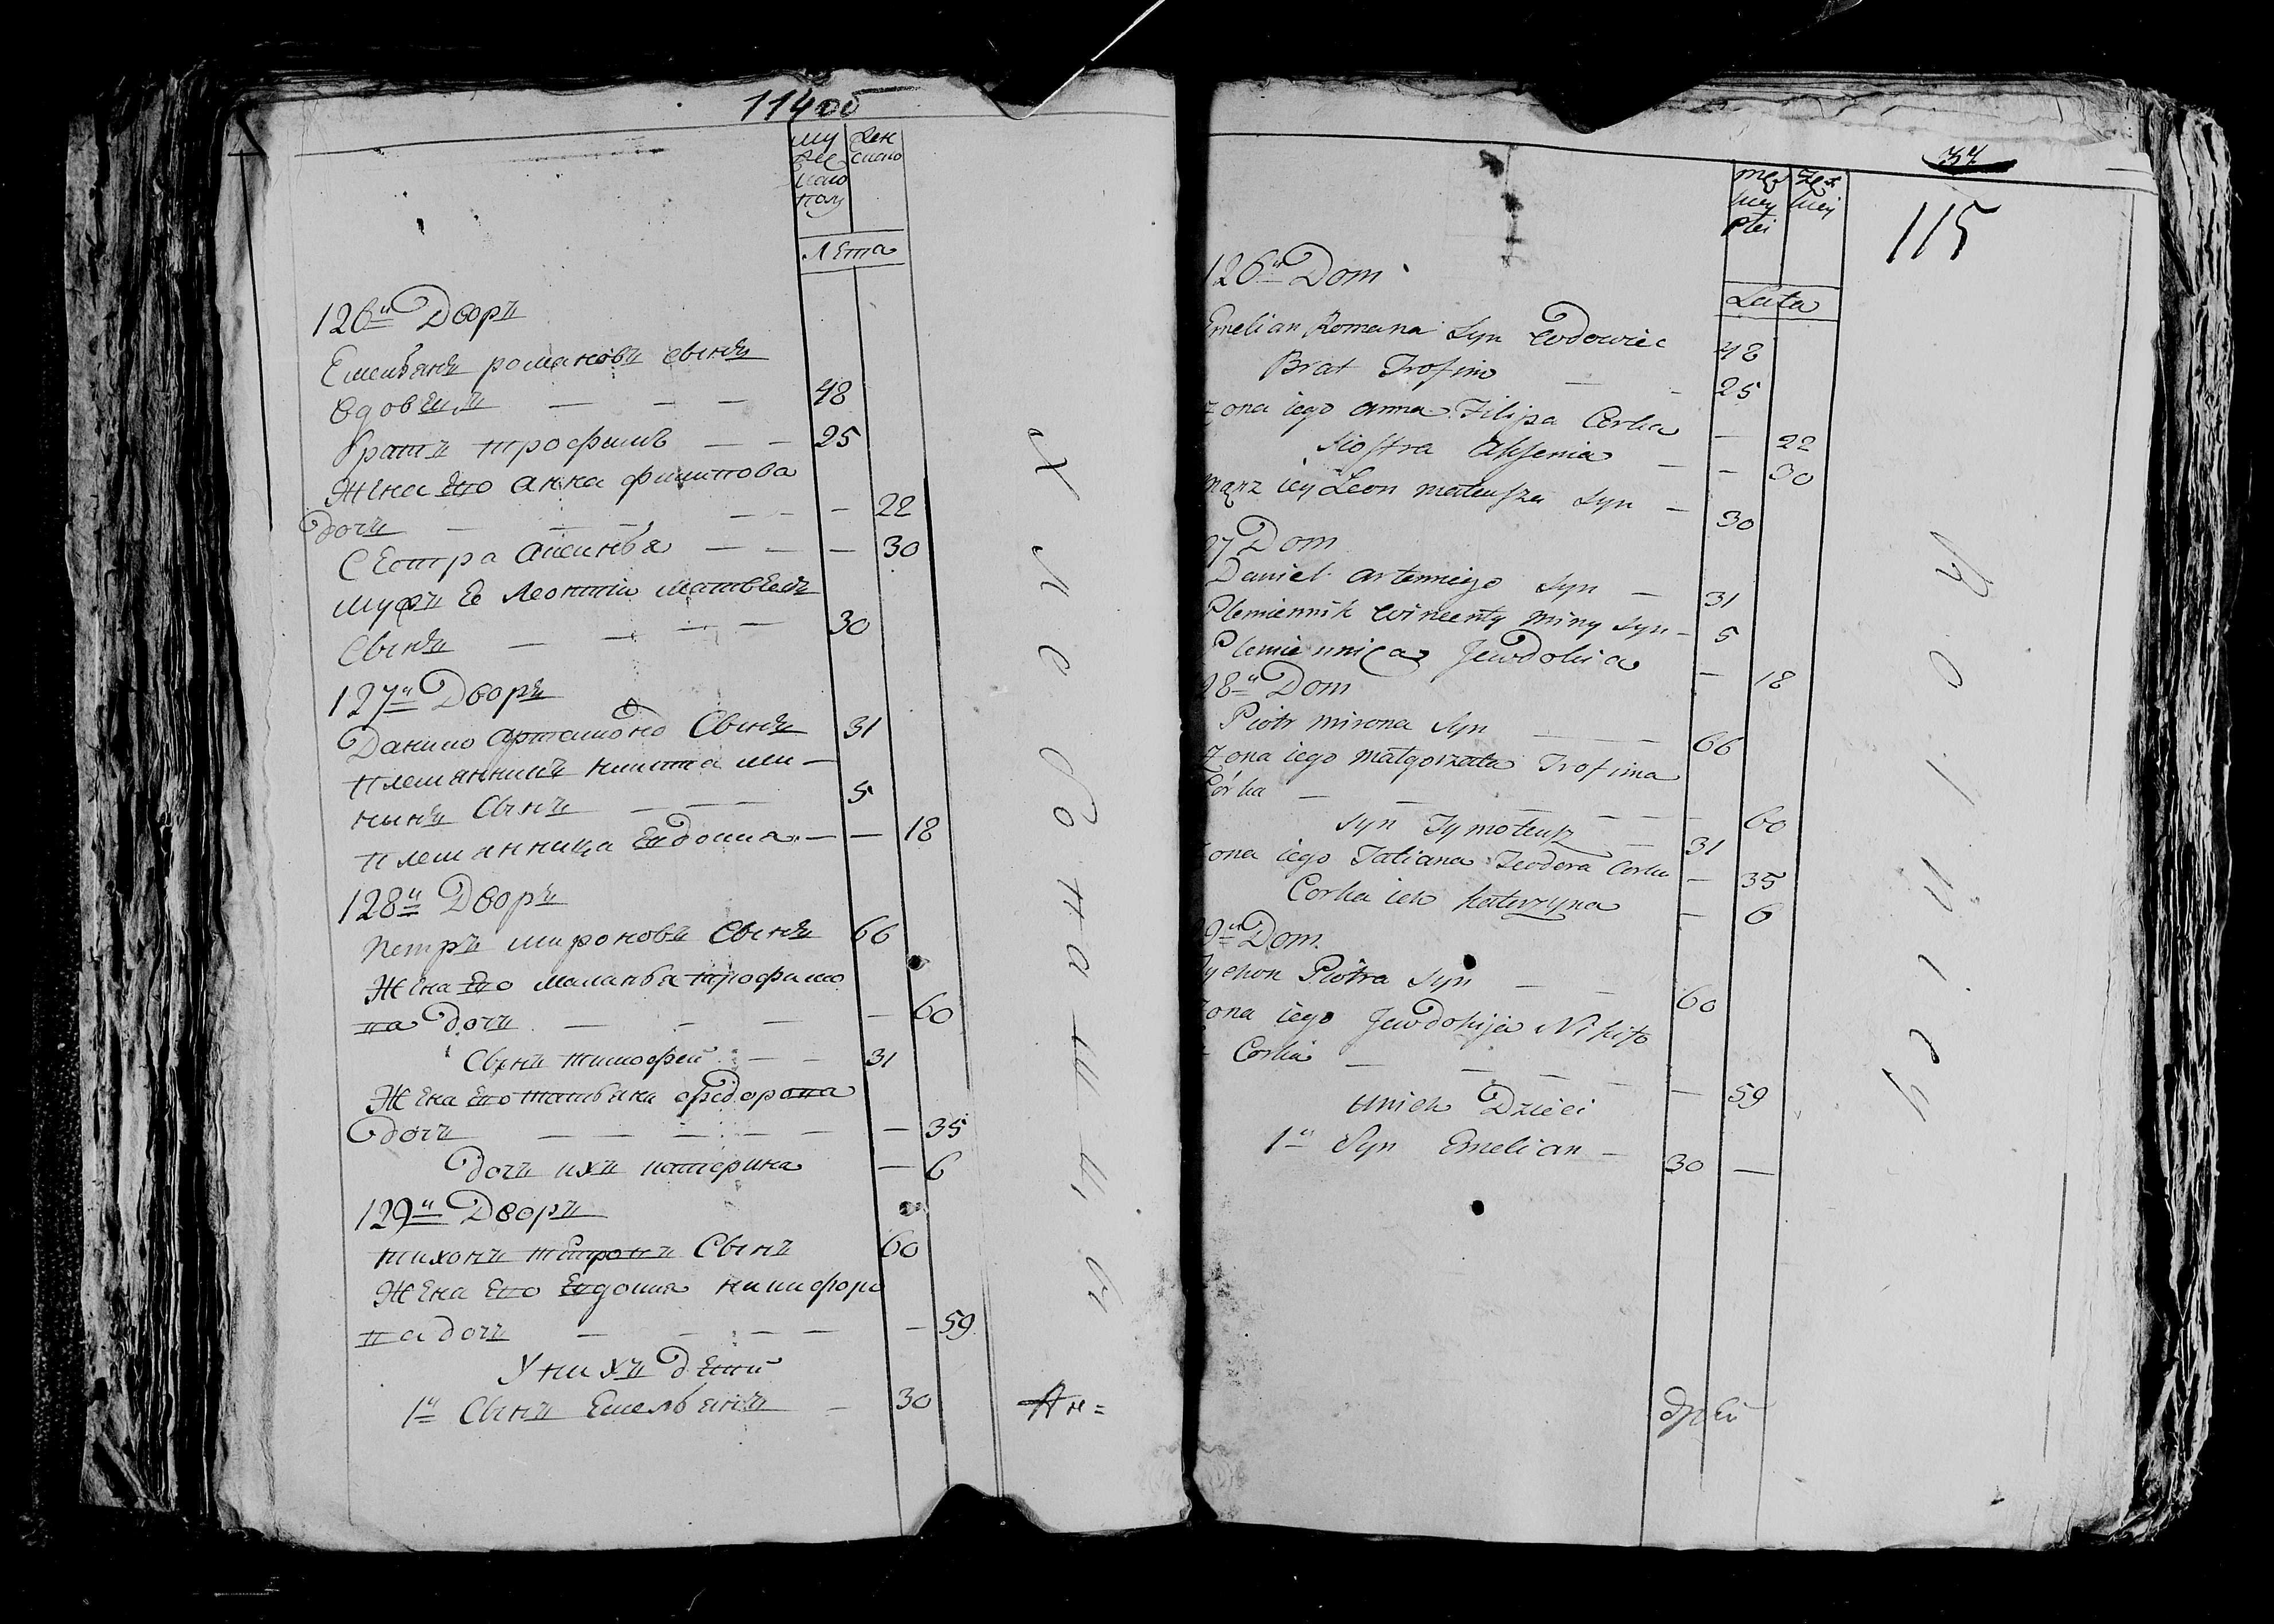 114об
му
жес
каго
полу
жен
скаго
Лета
126й Дворъ
Емельянъ романовъ сынъ
вдовецъ — — — 48
братъ трофимъ — — 25
Жена его анна филипова
дочь — — — — — 22
Сестра аксинья — — — 30
мужъ ее Леонтий матвеевъ
сынъ — — — — 30
127й Дворъ
Данило сынъ 31
племянникъ никита ми-
нинъ сынъ — — — 5
племянница Евдокия — — 18
128й Дворъ
петръ мироновъ сынъ 66
Жена его маланья трофимо
ва дочь — — — — 60
сынъ тимофей — — 31
Жена его татьяна федорова
дочь — — — — — — 35
дочь ихъ катерина — 6
129й Дворъ
тихонъ сынъ 60
Жена его Евдокия никифоро
ва дочь — — — — — 59
У нихъ детей
1й Сынъ Емельянъ — 30
Ан=
37
115
męz
kiey
płci
żeń
skiey
Lata
126й Dom
Emelian Romana Syn wdowiec 48
Brat Trofim — — 25
żona iego anna Filipa Corka — 22
Siostra Aksenia — — 30
mąrz iey Leon mateusza Syn — 30
27 Dom
Daniel artemiego Syn — 31
Plemiennik wincenty miny Syn — 5
Plemiennica Jewdokia — 18
28й Dom
Piotr mirona Syn — — — 66
żona iego małgorzata Trofima
Córka — — — — — — 60
Syn Tymoteusz — 31
żona iego Tatiana Teodora Corka — 35
Corka ich Katerzyna — 6
9й Dom
Tychon Piotra Syn — — 60
żona iego Jewdokija Nikifo
Corka — — — — — — 59
unich Dzieci
1й Syn Emelian — 30 —